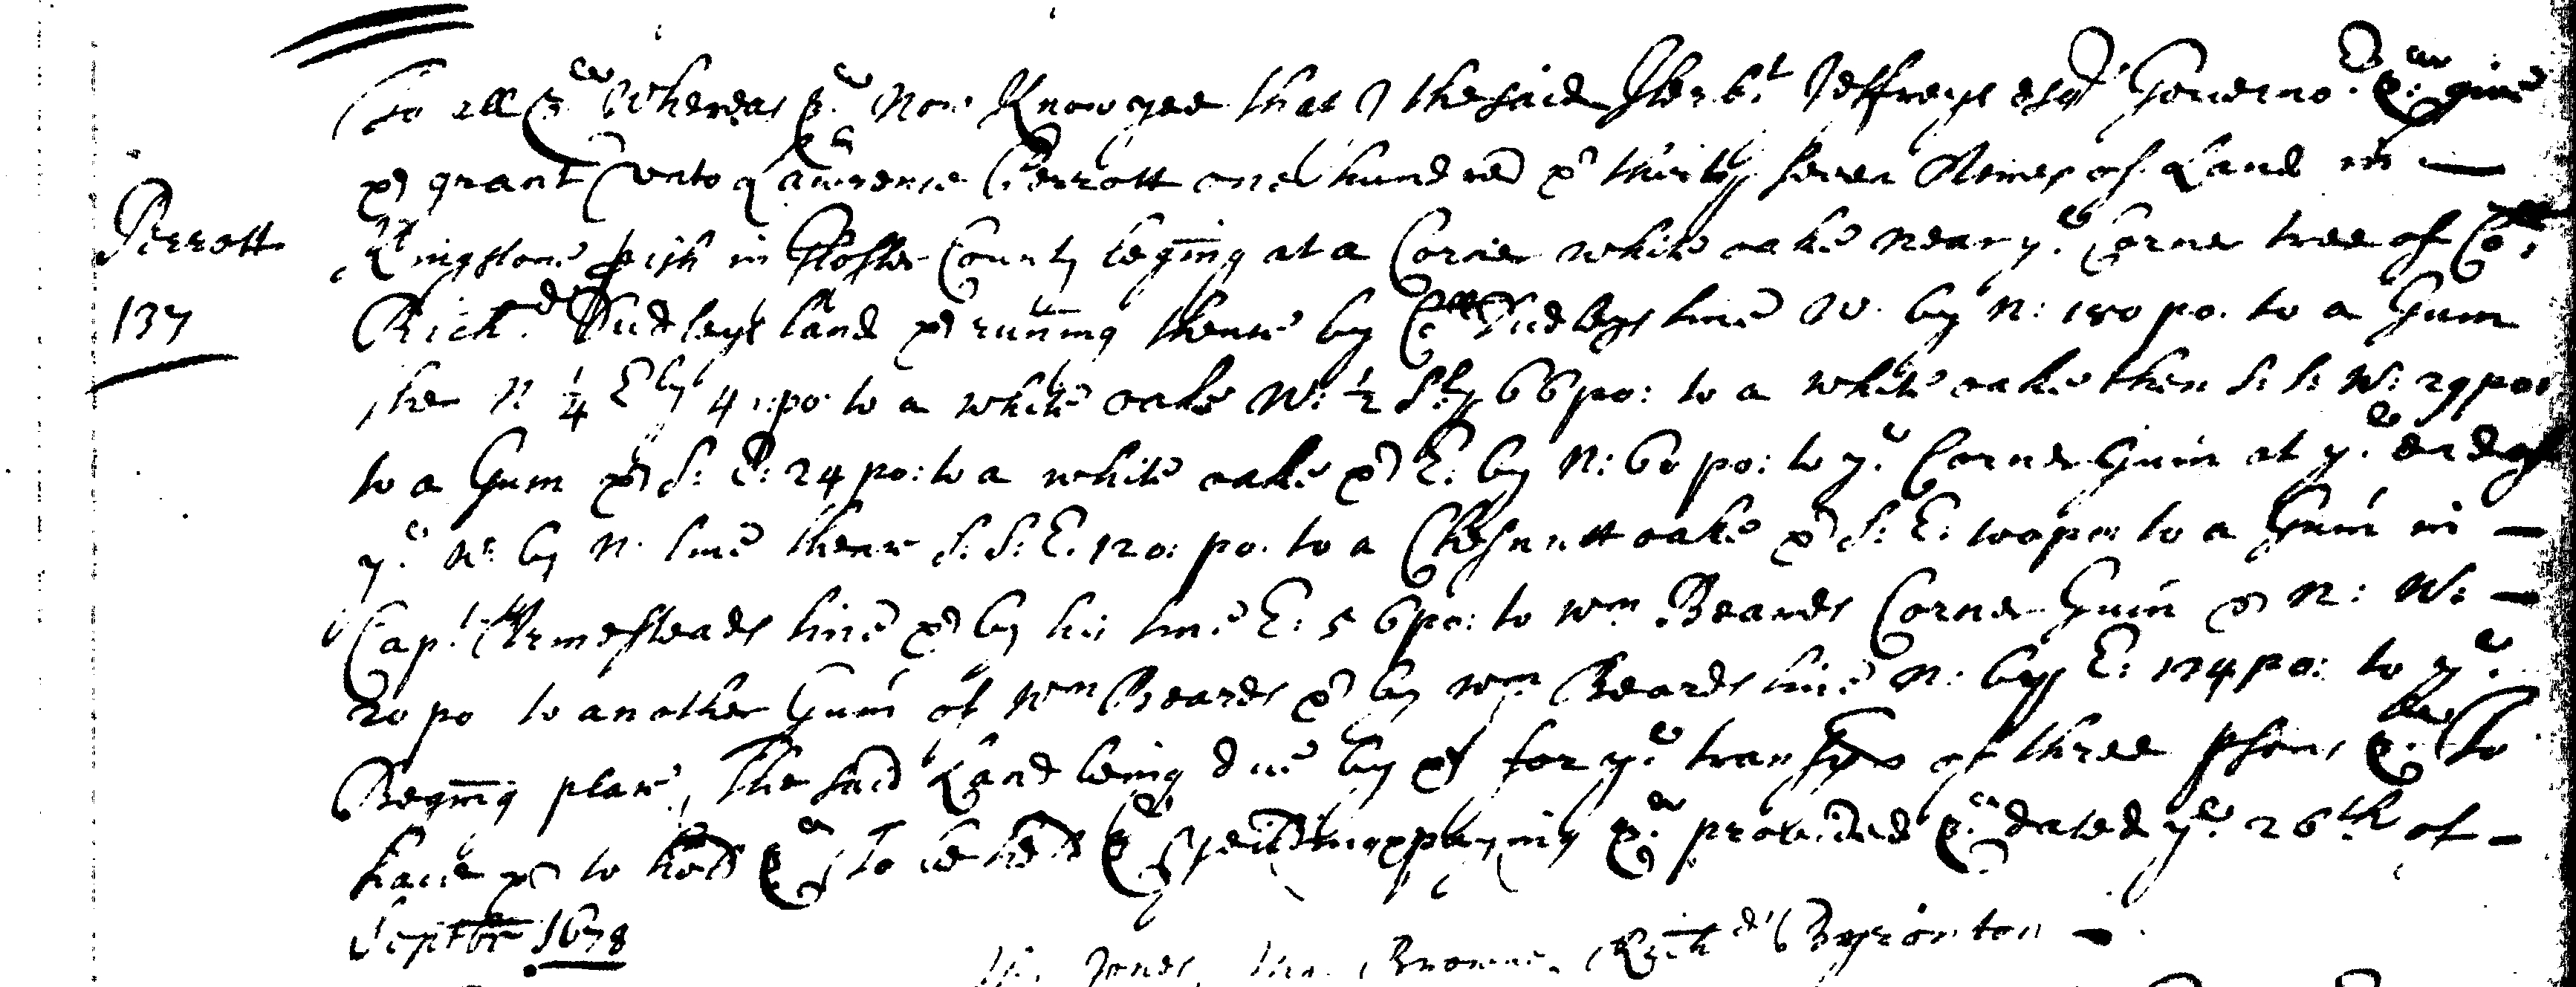 To all &c.e Whereas &c.e Now Know yee that I the said Herbt. Jeffreys esqr. Governor. &c.e give
& grant unto Lawrence Perrott one hundred & thirty seven Acres of Land in —
Perrott
Kingstone pish in Gloster County begining at a Corner white oake near ye. Corner tree of Coll.
137
Richd. Dudleys land & runing thence by Coll Dudleys line W. by N: 180 po. to a Gum
then N 1/4 Ely 41 po to a white oake W: 1/2 Sly 66 po: to a white oake then S: S: W: 29 poe
to a Gum & S: E: 24 po: to a white oake & E. by N: 60 po: to ye. Corner Gum at ye. end of
ye. W: by N. line thence S: S: E. 120: po. to a Chesnutt oake & S: E: 100 po: to a Gum in —
Capt. Armesteads line & by his line E: 56 po: to Wm Beards Corner Gum & N: W: —
20 po to another Gum of Wm Beards & by Wm. Beards line N: by E: 124 po: to ye.
Begining place, The said Land being due by & for ye. transpo of three psons &c.e To
have & to hold &c.e To be held &c.e Yeilding & paying &c.e provided &c.e dated ye. 26th of —
Septbr 1678
Jones, Browne, Richd. Byronton —